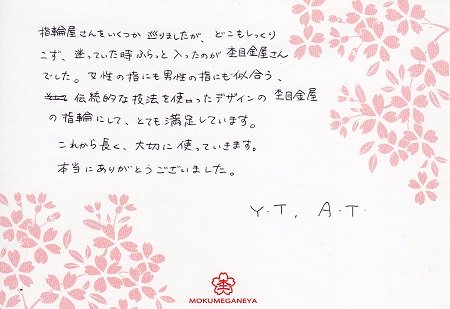 指輪屋さんをいくつか巡りましたが、どこもしっくり
こず、迷っていた時ふらっと入ったのが杢目金屋さん
でした。女性の指にも男性の指にも似合う、
伝統的な技法を使ったデザインの杢目金屋
の指輪にして、とても満足しています。
これから長く、大切に使っていきます。
本当にありがとうございました。
Y.T, A.T
MOKUMEGANEYA